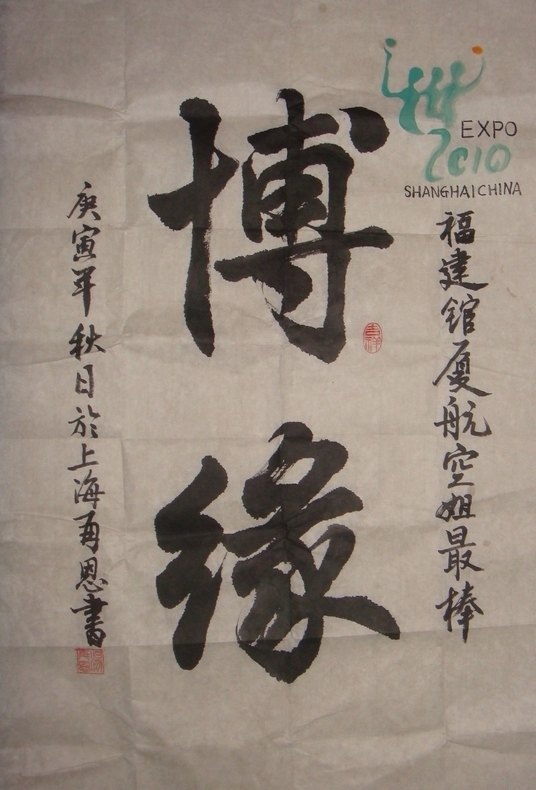 EXPO
2010
SHANGHAI CHINA
福建館厦航空姐最棒
博缘
庚寅年秋日於上海
恩書